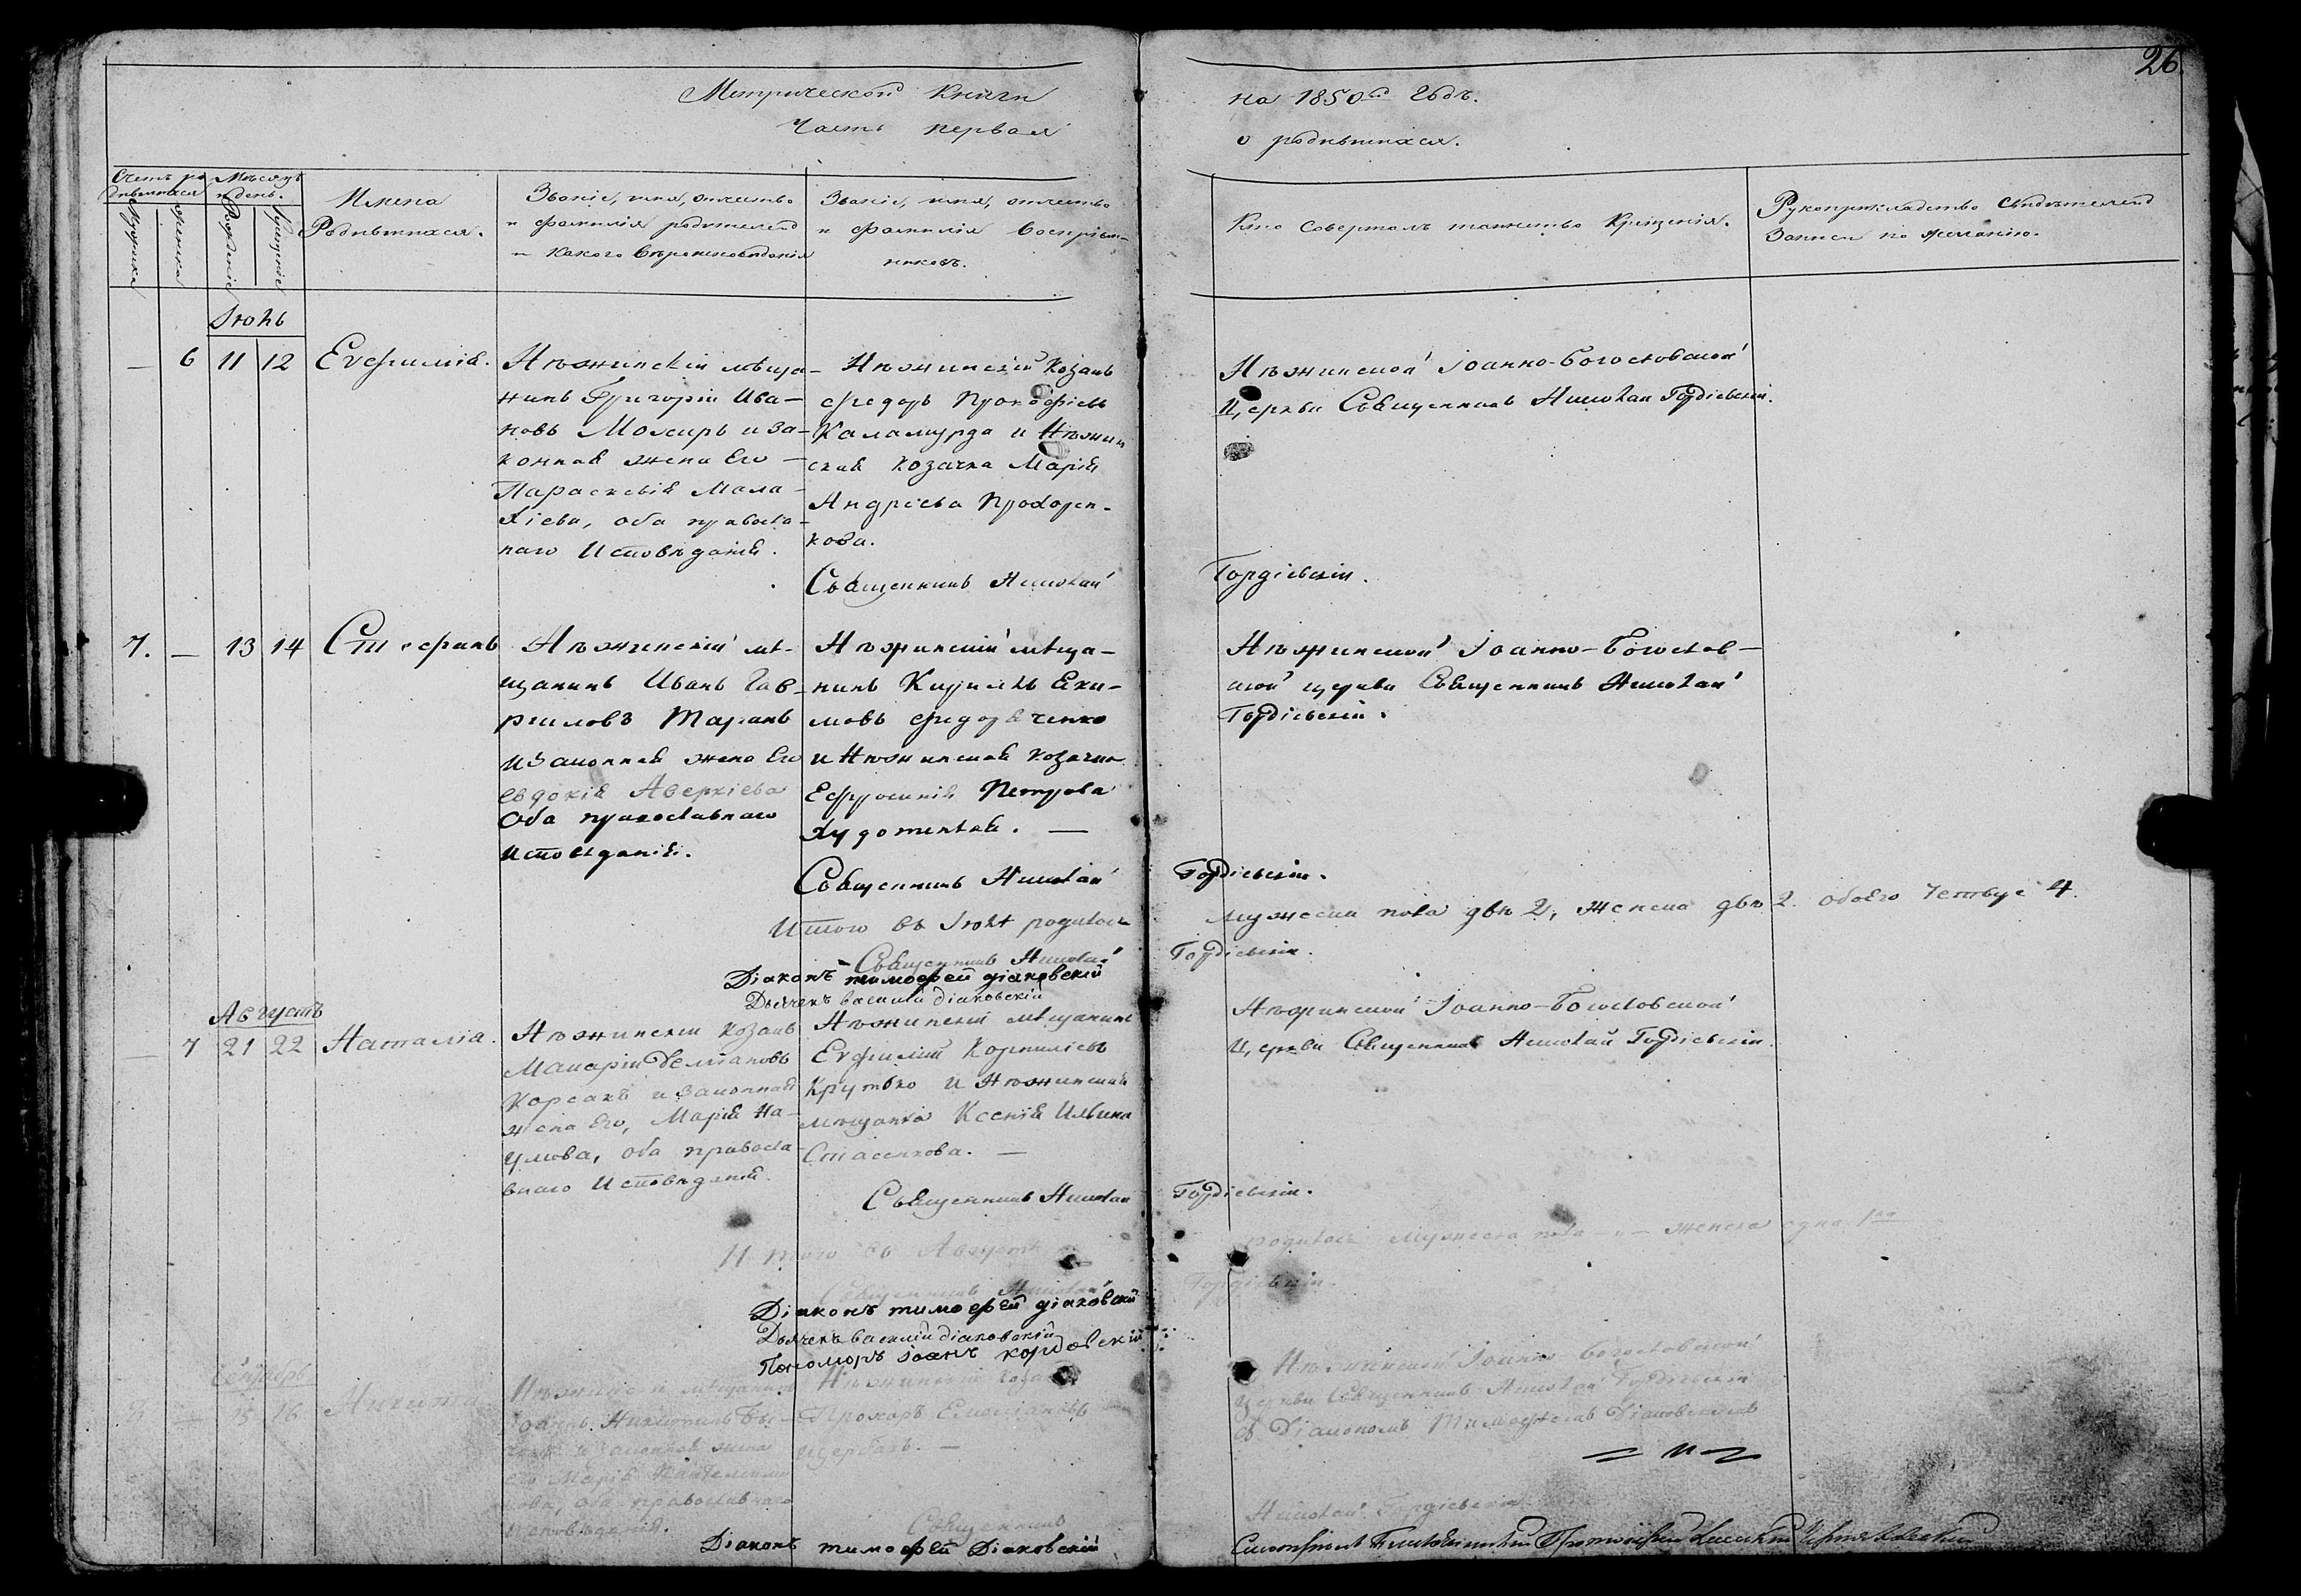 26
Метрической Книги
Часть первая
на 1850й Годъ.
о родившихся.
Счетъ ро
дившихся
Мужеска
Женска
Мѣсяцъ
и день.
Рожденіе
Крещеніе
Имена
Родившихся.
Званіе, имя, отчество
и фамилія родителей
и какого вѣроисповѣданія
Званіе, имя, отчество
и фамилія воспріем-
никовъ.
Кто совершалъ таинство Крещенія.
Рукоприкладство свидѣтелей
Записи по желанію.
Іюль
— 6 11 12 Евфимія.
Нѣжинскій мѣща-
нинъ Григорій Ива-
новъ Можиръ и за-
конная жена Его
Параскевія Мала-
хіева, оба правосла-
наго Исповѣданія.
Нѣжинскій Козакъ
Федоръ Прокофіевъ
Каламурда и Нѣжин
ская Козачка Марія
Андріева Прохорен-
кова.
Нѣжинской Іоанно-Богословской
Церкви Священникъ Николай Гордіевскій.
Священникъ Николай
Гордіевскій.
7. — 13 14 Стефанъ
Нѣжинскій мѣ-
щанинъ Иванъ Гав-
риловъ Таранъ
и законная жена Его
Евдокія Аверкіева
Оба православнаго
Исповѣданія.
Нѣжинскій мѣща-
нинъ Кирилъ Еки-
мовъ Федорченко
и Нѣжинская Козачка
Ефросинія Петрова
Худотеплая. —
Нѣжинской Іоанно-Богослов-
ской церкви Священникъ Николай
Гордіевскій.
Священникъ Николай
Гордіевскій.
Итого въ Іюлѣ родилось
мужеска пола два 2, женска двѣ 2. обоего четверо 4.
Священникъ Николай
Гордіевскій.
Діаконъ тимофей діаковскій
Дьячекъ василій діаковскій
Августъ
— 7 21 22 Наталія.
Нѣжинскій козакъ
Макарій Деміановъ
Корсакъ и законная
жена Его, Марія На-
умова, оба правосла-
внаго Исповѣданія.
Нѣжинскій мѣщанинъ
Евфимій Корниліевъ
Крутько и Нѣжинская
мѣщанка Ксенія Ильина
Стасенкова. —
Нѣжинской Іоанно-Богословской
Церкви Священникъ Николай Гордіевскій.
Священникъ Николай
Гордіевскій.
Итого въ Августѣ
родилось Мужеска пола — „ — женска одна 1на
Священникъ Николай
Гордіевскій.
Діаконъ тимофей діаковскій
Дьячекъ василій діаковскій
Пономоръ іоанъ кордовскій
Сентябрь
8 — 15 16 Никита
Нѣжинскій мѣщанинъ
Іоаннъ Никитинъ
и законная жена
его Марія
оба православнаго
Исповѣданія.
Нѣжинскій козакъ
Прохоръ Емеліановъ
Щербакъ. —
Нѣжинской Іоанно-Богословской
Церкви Священникъ Николай Гордіевскій
съ Діакономъ Тимофеемъ Діаковскимъ
Священникъ
Николай Гордіевскій
Діаконъ тимофей Діаковскій